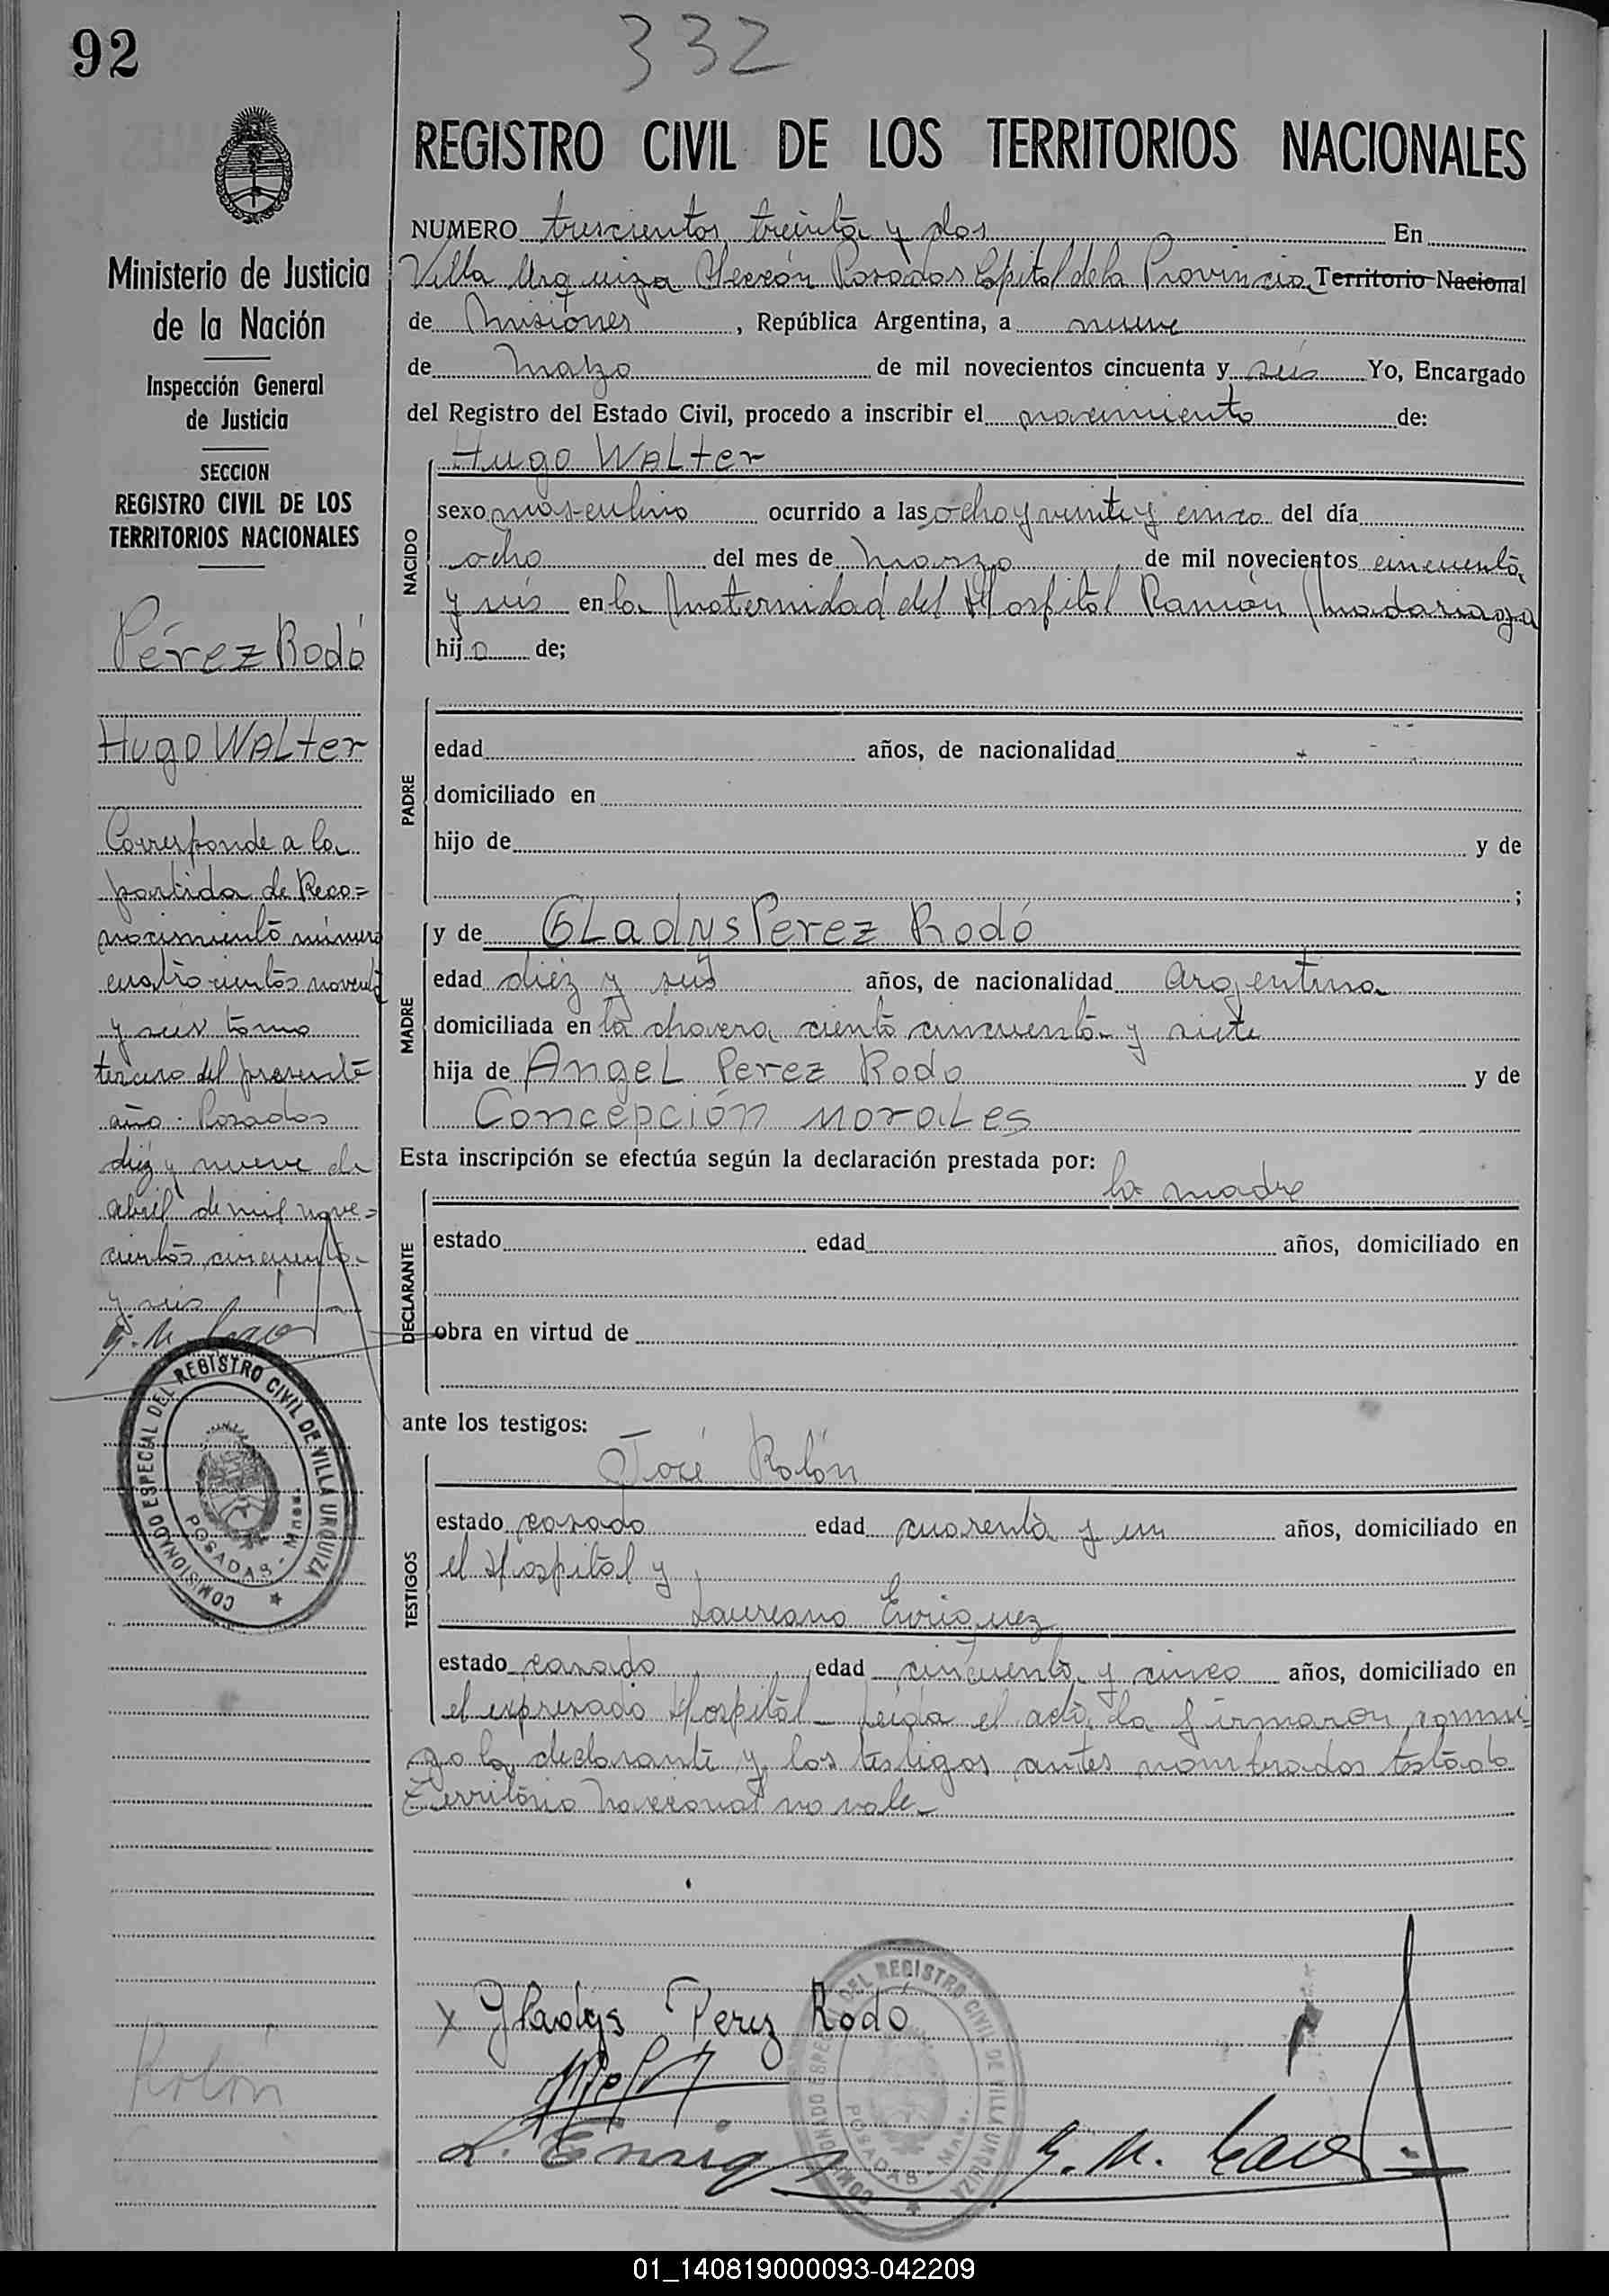 92
332
Ministerio de Justicia
de la Nación
Inspección General
de Justicia
SECCION
REGISTRO CIVIL DE LOS
TERRITORIOS NACIONALES
Pérez Rodó
Hugo WALter
Corresponde a la
partida de Reco=
nocimiento número
cuatrocientos noventa
y seis tomo
tercero del presente
año. Posadas
diez y nueve de
abril de mil nove=
cientos cincuenta
y seis
COMISIONADO ESPECIAL DEL REGISTRO CIVIL DE VILLA URQUIZA
POSADAS - Mnes.
Rolón
REGISTRO CIVIL DE LOS TERRITORIOS NACIONALES
NUMERO trescientos treinta y dos En
Villa Urquiza Sección Posadas Capital de la Provincia Territorio Nacional
de Misiones, República Argentina, a nueve
de Marzo de mil novecientos cincuenta y seis Yo, Encargado
del Registro del Estado Civil, procedo a inscribir el nacimiento de:
Hugo WALter
NACIDO
sexo masculino ocurrido a las ocho y veinte y cinco del día
ocho del mes de Marzo de mil novecientos cincuenta
y seis en la Maternidad del Hospital Ramón Madariaga
hijo de;
PADRE
edad años, de nacionalidad
domiciliado en
hijo de y de
;
MADRE
y de GLadys Perez Rodó
edad diez y seis años, de nacionalidad Argentina
domiciliada en la chacra ciento cincuenta y siete
hija de AngeL Perez Rodo y de
Concepción MoraLes
Esta inscripción se efectúa según la declaración prestada por:
la madre
DECLARANTE
estado edad años, domiciliado en
obra en virtud de
ante los testigos:
TESTIGOS
José Rolón
estado casado edad cuarenta y un años, domiciliado en
el Hospital y
Laureano Enriquez
estado casado edad cincuenta y cinco años, domiciliado en
el expresado Hospital - Leída el acta la firmaron conmi=
go la declarante y los testigos antes nombrados testado
Territorio Nacional no vale-
x Gladys Perez Rodó
COMISIONADO ESPECIAL DEL REGISTRO CIVIL DE VILLA URQUIZA
POSADAS - Mnes.
L. Enriq
01_140819000093-042209